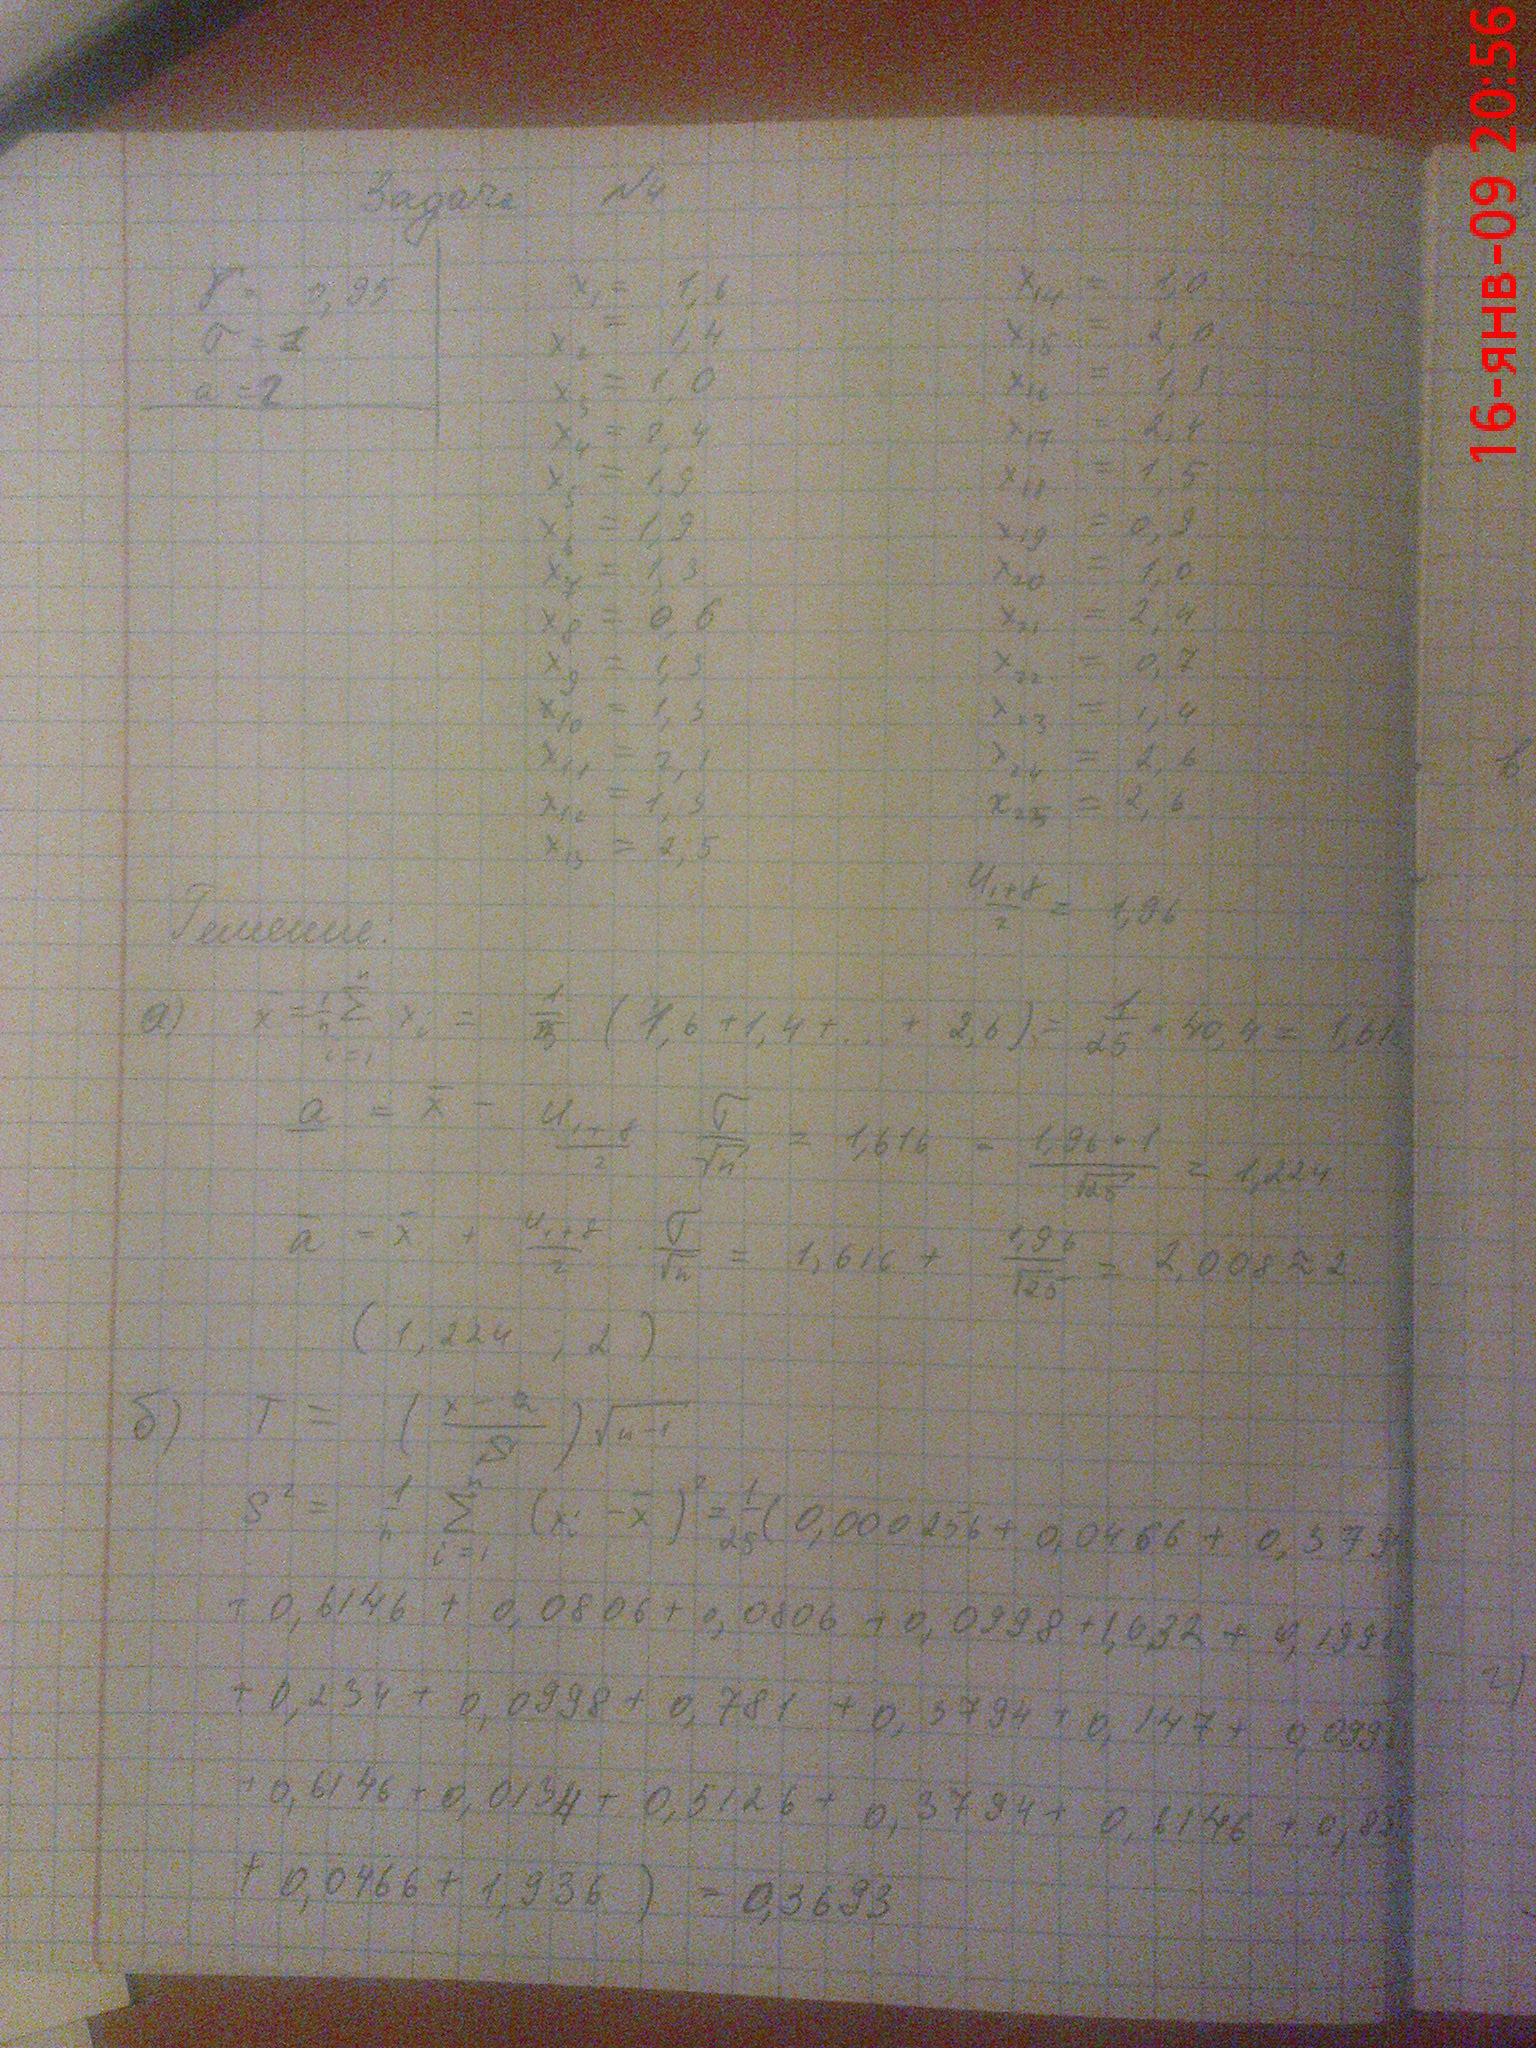 16-янв-09 20:56
Задача №4
γ = 0,95
σ = 1
a = 2
x₁ = 1,6
x₂ = 1,4
x₃ = 1,0
x₄ = 2,4
x₅ = 1,9
x₆ = 1,9
x₇ = 1,3
x₈ = 0,6
x₉ = 1,3
x₁₀ = 1,3
x₁₁ = 2,1
x₁₂ = 1,3
x₁₃ = 2,5
x₁₄ = 1,0
x₁₅ = 2,0
x₁₆ = 1,3
x₁₇ = 2,4
x₁₈ = 1,5
x₁₉ = 0,9
x₂₀ = 1,0
x₂₁ = 2,4
x₂₂ = 0,7
x₂₃ = 1,4
x₂₄ = 2,6
x₂₅ = 2,6
u_{(1+γ)/2} = 1,96
Решение:
а) x̄ = 1/n ∑_{i=1}^{n} xᵢ = 1/25 (1,6 + 1,4 + ... + 2,6) = 1/25 · 40,4 = 1,616
a̲ = x̄ - u_{(1+γ)/2} σ/√n = 1,616 - 1,96·1/√25 = 1,224
ā = x̄ + u_{(1+γ)/2} σ/√n = 1,616 + 1,96/√25 = 2,008 ≈ 2
(1,224 ; 2)
б) T = ((x - a)/S) √(n-1)
S² = 1/n ∑_{i=1}^{n} (xᵢ - x̄)² = 1/25 (0,000256 + 0,0466 + 0,3794
+ 0,6146 + 0,0806 + 0,0806 + 0,0998 + 1,032 + 0,199
+ 0,234 + 0,0998 + 0,781 + 0,3794 + 0,147 + 0,0998
+ 0,6146 + 0,0134 + 0,5126 + 0,3794 + 0,6146 + 0,8
+ 0,0466 + 1,936) = 0,3693
в
г)